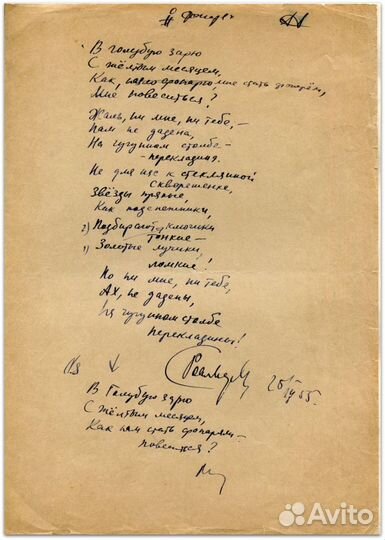 В голубую зарю
С жёлтым месяцем,
Как, мне стать фонарём,
Мне повеситься?
Жаль, ни мне, ни тебе, —
Нам не дадена,
На чугунном столбе —
- перекладина.
Не для нас к стеклянной
скворешенке,
Звёзды пряные,
Как подснежники,
2) Подбирают ключики
тонкие —
1) Золотые лучики
ломкие!
Но ни мне, ни тебе,
Ах, не дадены,
На чугунном столбе
перекладины!
1955г.
В голубую зарю
С жёлтым месяцем,
Как нам стать фонарём —
повеситься?
Avito